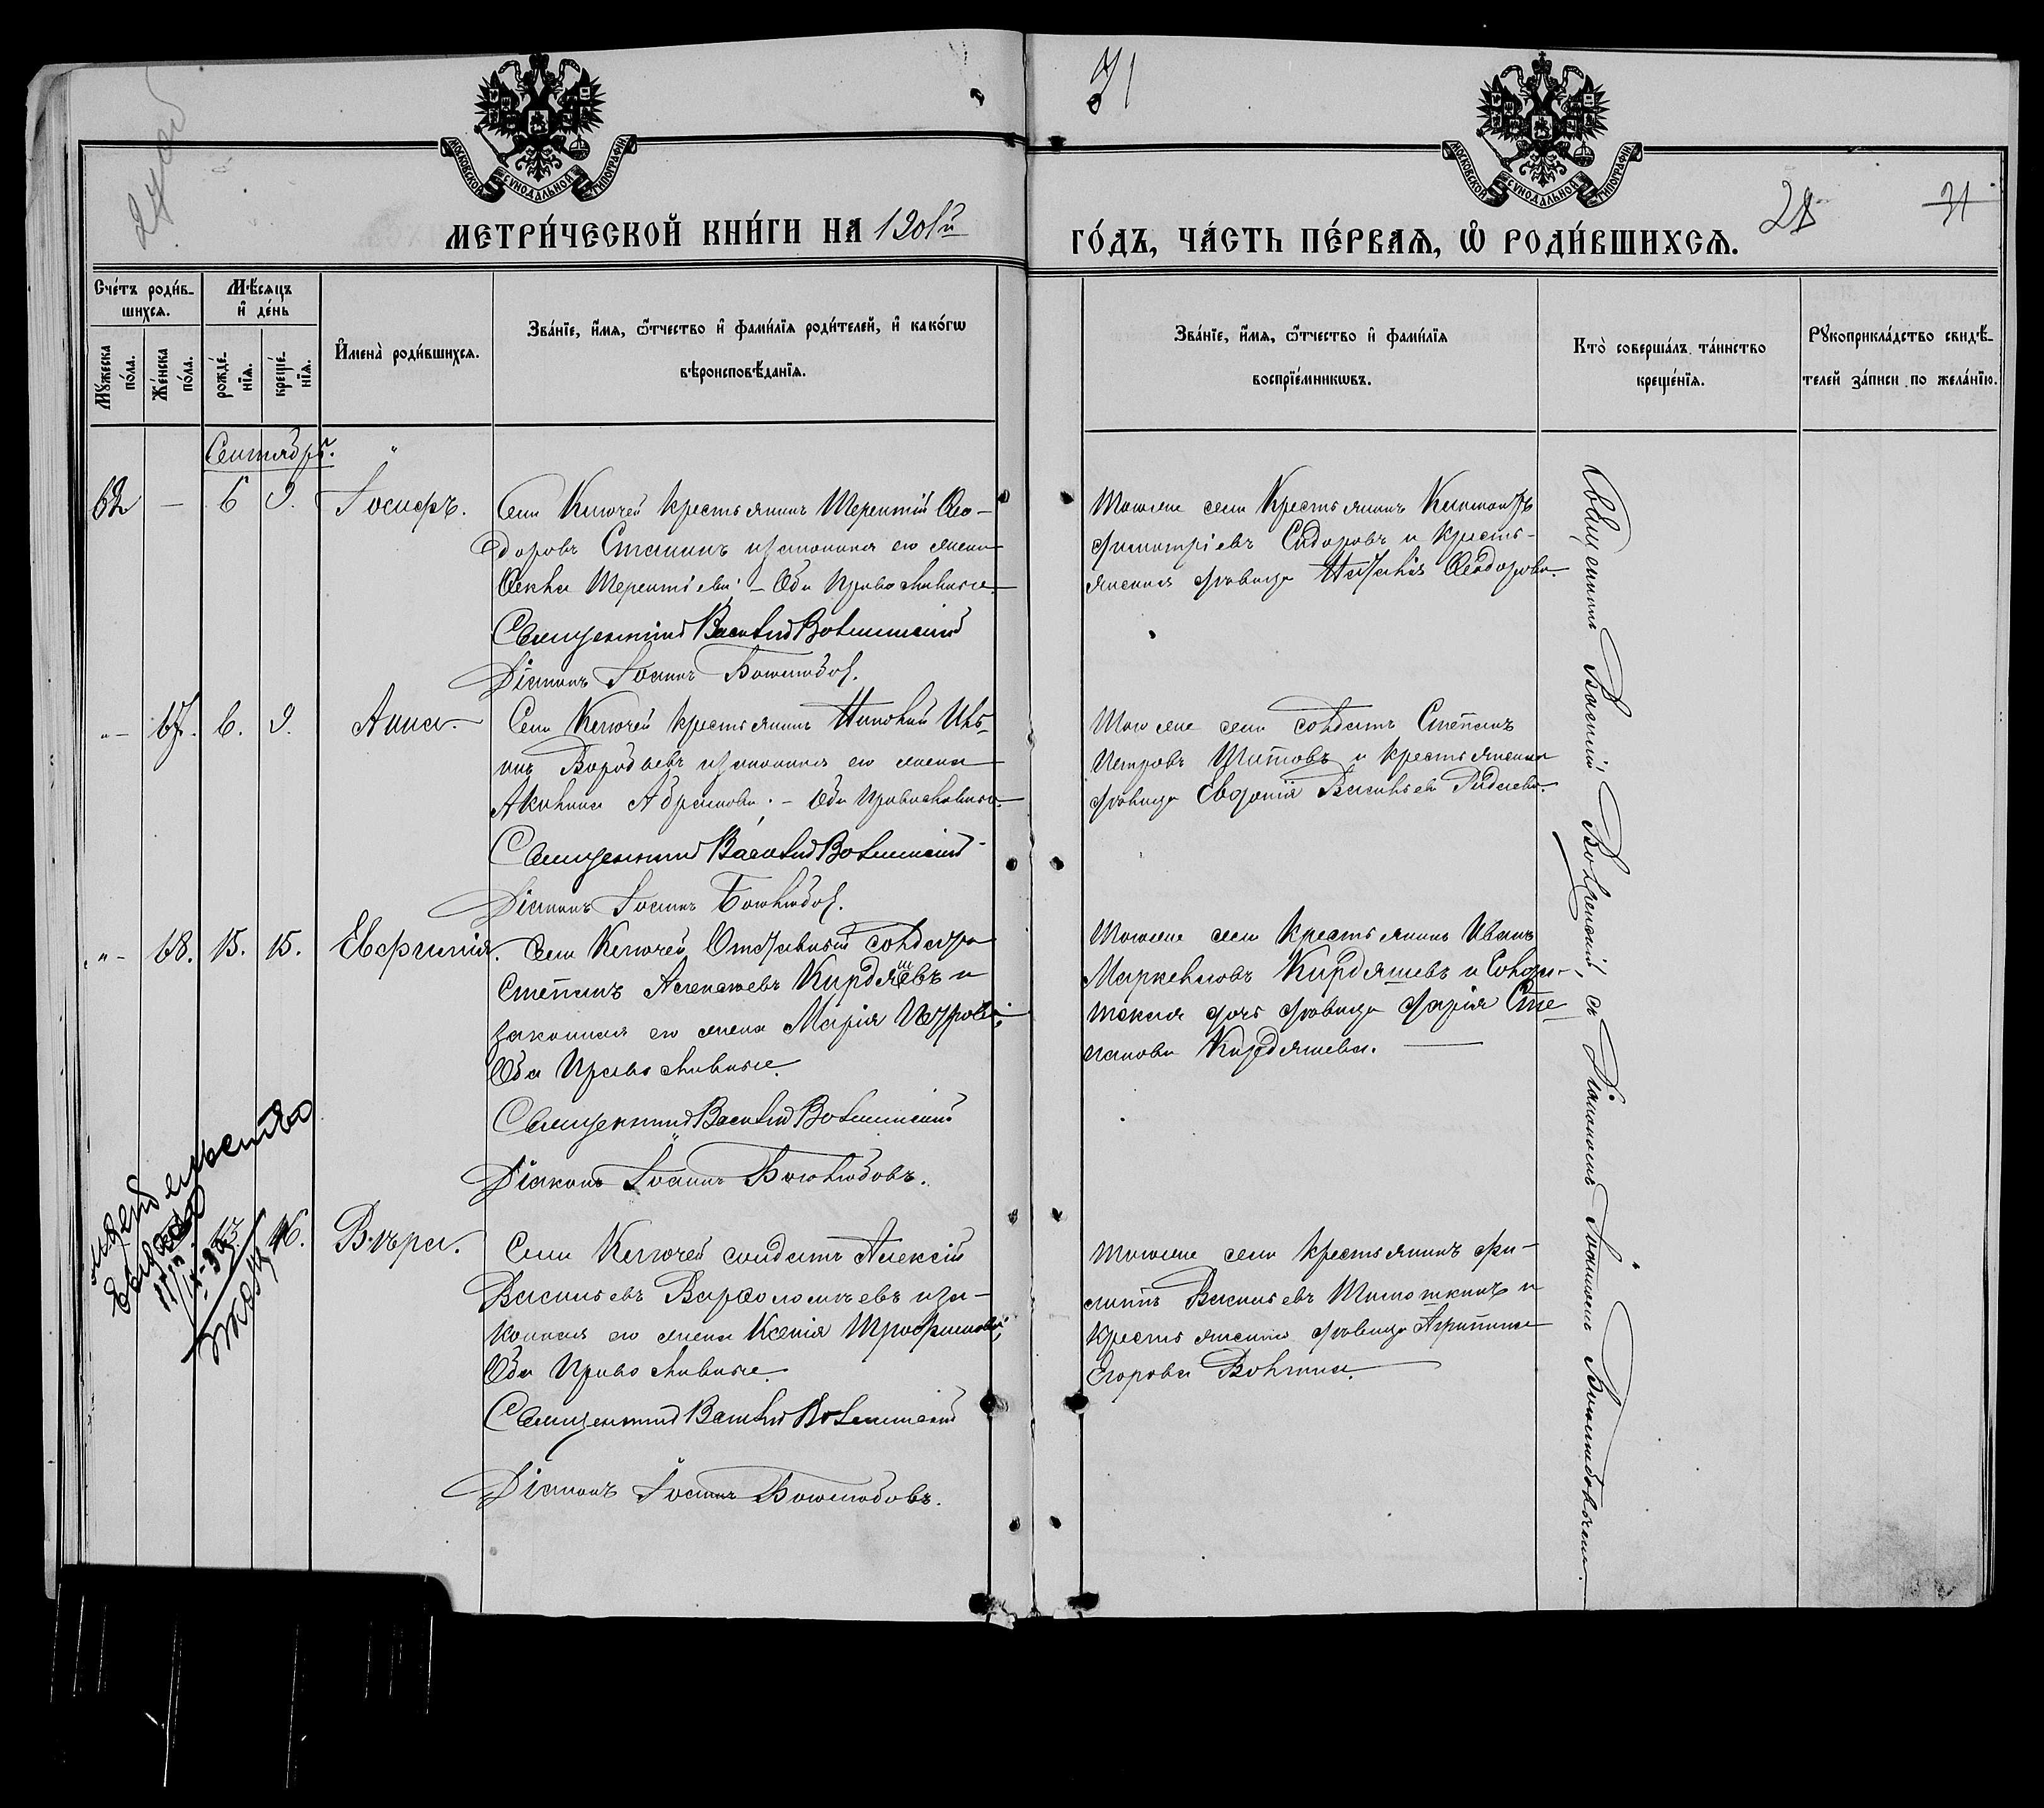 71
МОСКОВСКОЙ СѴНОДАЛЬНОЙ ТИПОГРАФІИ
МОСКОВСКОЙ СѴНОДАЛЬНОЙ ТИПОГРАФІИ
28
31
МЕТРИ́ЧЕСКОЙ КНИ́ГИ НА 1901й
ГО́ДЪ, ЧА́СТЬ ПЕ́РВАЯ, Ѡ҆ РОДИ́ВШИХСЯ.
Сче́тъ роди́в-
шихся.
Мѣ́сяцъ
и҆ де́нь
Мꙋ́жеска по́ла.
Же́нска по́ла.
рожде́-нїя.
креще́-нїя.
И҆мена̀ роди́вшихся.
Зва́нїе, и҆́мя, ѻ҆́тчество и҆ фами́лїя роди́телей, и҆ како́гѡ
вѣроисповѣ́данїя.
Зва́нїе, и҆́мя, ѻ҆́тчество и҆ фами́лїя
воспрїе́мникѡвъ.
Кто̀ соверша́лъ та́инство
креще́нїя.
Рꙋкоприкла́дство свидѣ́-
телей за́писи по жела́нїю.
Сентябрь.
62 — 6 9. Іосифъ.
Села Ключей крестьянинъ Терентій Ѳео-
доровъ Сташинъ и законная его жена
Ѳекла Терентіева; — Оба Православные.
Священникъ Василій
Діаконъ Іоаннъ Боголюбов.
Того же села Крестьянинъ
Димитріевъ Сидоровъ и крестья-
янская дѣвица Наталія Ѳеодорова.
"— 67. 6. 9. Анна.
Села Ключей крестьянинъ Ива-
нъ Воробьевъ и законная его жена
Акилина Абрамова. — Оба Православные.
Священникъ Василій
Діаконъ Іоаннъ Боголюбов.
Того же села солдатъ Степанъ
Петровъ и крестьянская
дѣвица Евдокія Васильева
"— 68. 15. 15. Евфимія.
Села Ключей Отставной солдатъ
Степанъ Кирдяшевъ и
законная его жена Марія Петрова;
Оба Православные.
Священникъ Василій
Діаконъ Іоаннъ Боголюбовъ.
Того же села Крестьянинъ Иванъ
Маркеловъ Кирдяшевъ и Солда-
тская дочь дѣвица Дарія Сте-
панова Кирдяшева. —
16. Вѣра.
Села Ключей солдатъ Алексій
Васильевъ Варѳоломеевъ и за-
конная его жена Ксенія Трофимова;
Оба Православные.
Священникъ Василій
Діаконъ Іоаннъ Боголюбовъ.
Того же села крестьянинъ Фи-
липпъ Васильевъ Тимошкинъ и
крестьянская дѣвица Агрипина
Егорова Волгина.
Священникъ Василій съ Діакономъ Іоанномъ Боголюбовымъ.